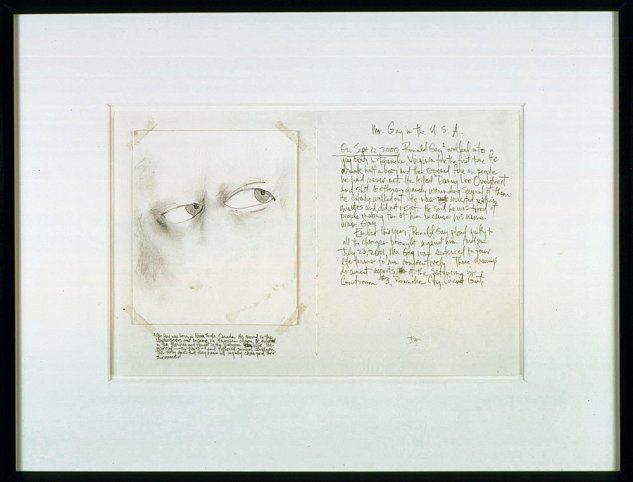 Mr. Gay in the U.S.A.
On Sept 22, 2000, Ronald Gay¹ walked into a
gay bar in Roanoke Virginia for the first time. He
drank half a beer and then opened fire on people
he had never met. He killed Danny Lee Overstreet
and shot 6 others, wounding several of them
He calmly walked out. He was arrested within
minutes and did not resist. He said he was tired of
people making fun of him because his name
was Gay.
Earlier this year, Ronald Gay plead guilty to
all the charges brought against him. And on
July 23, 2001, Mr. Gay was sentenced to four
life terms to run consecutively. These drawings
document aspects of the
Courtroom #3, Roanoke City Circuit Court.
¹ Mr Gay was born in Nova Scotia, Canada. He moved to the
United States and became an American citizen. He
in the Marines and fought in the Vietnam War. He
married
names